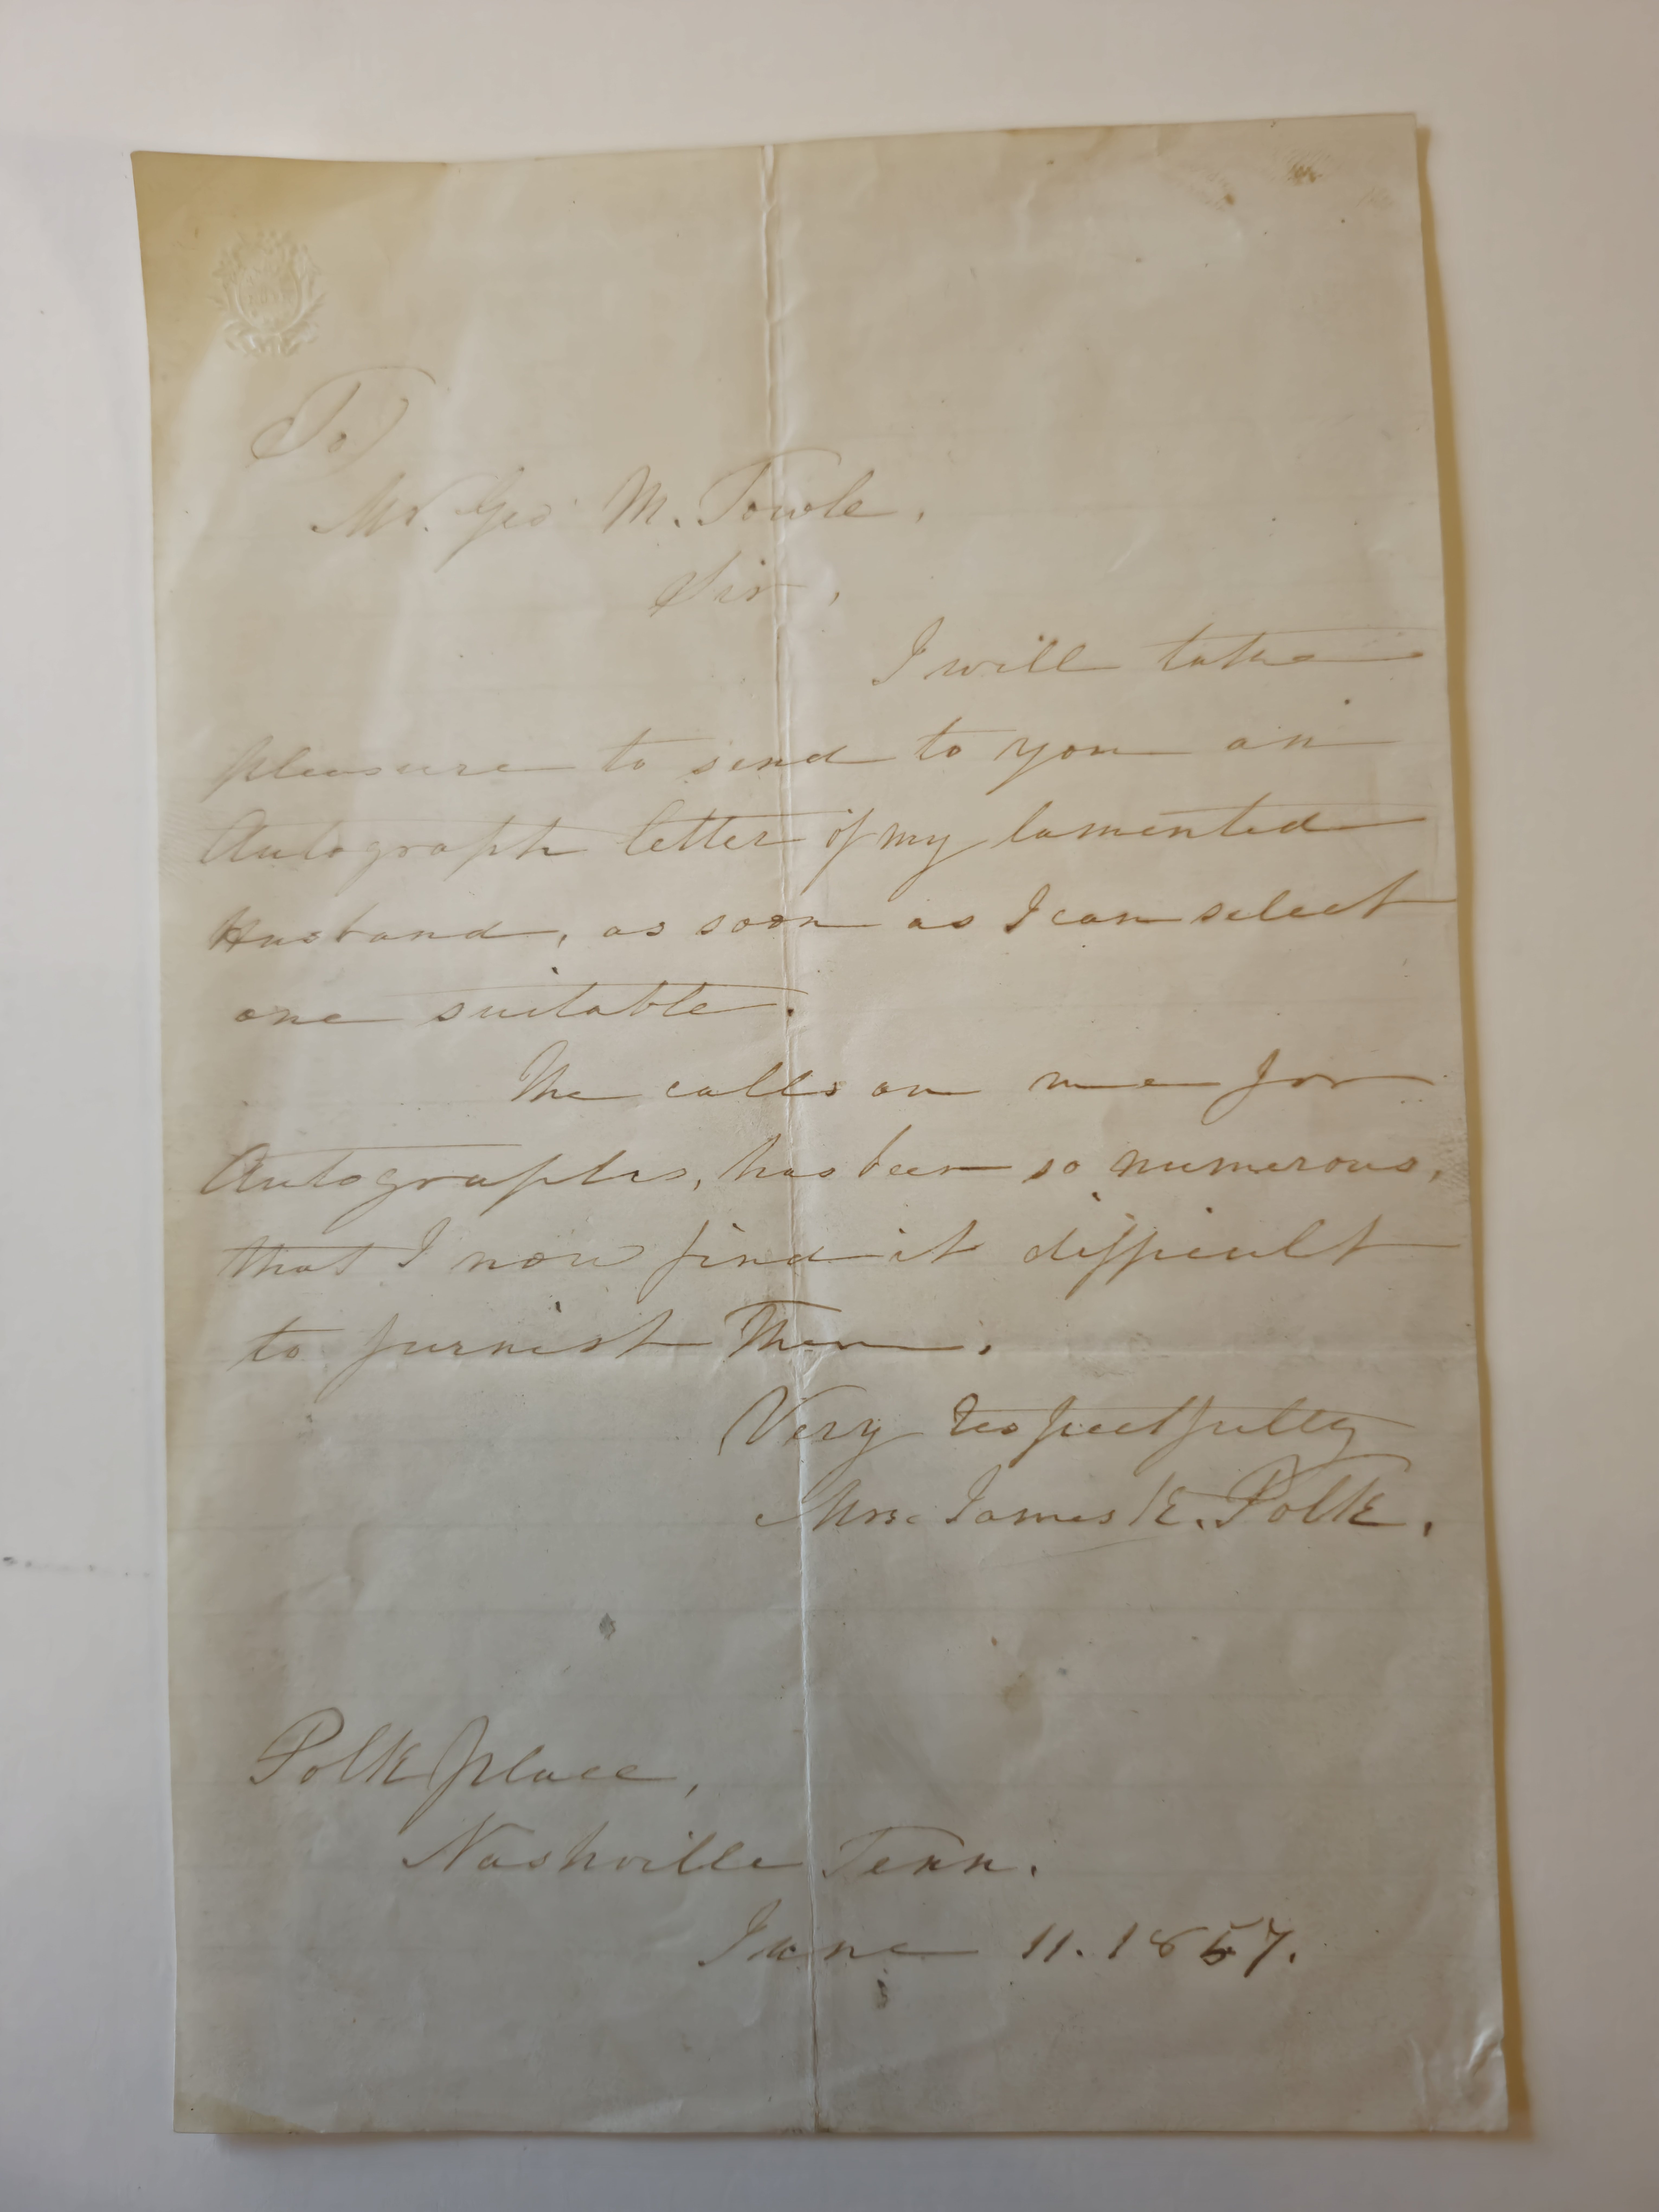 To
Mr. Geo M. Towle,
Sir,
I will take
pleasure to send to you an
Autograph letter of my lamented
Husband, as soon as I can select
one suitable.
The calls on me for
Autographs, has been so numerous,
that I now find it difficult
to furnish them.
Very respectfully
Mrs. James K. Polk.
Polk place,
Nashville Tenn.
June 11. 1857.